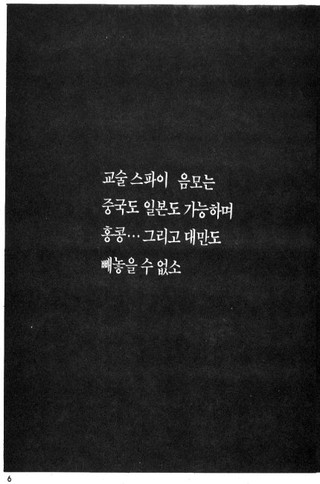 교술 스파이 음모는
중국도 일본도 가능하며
홍콩⋯그리고 대만도
빼놓을 수 없소
6